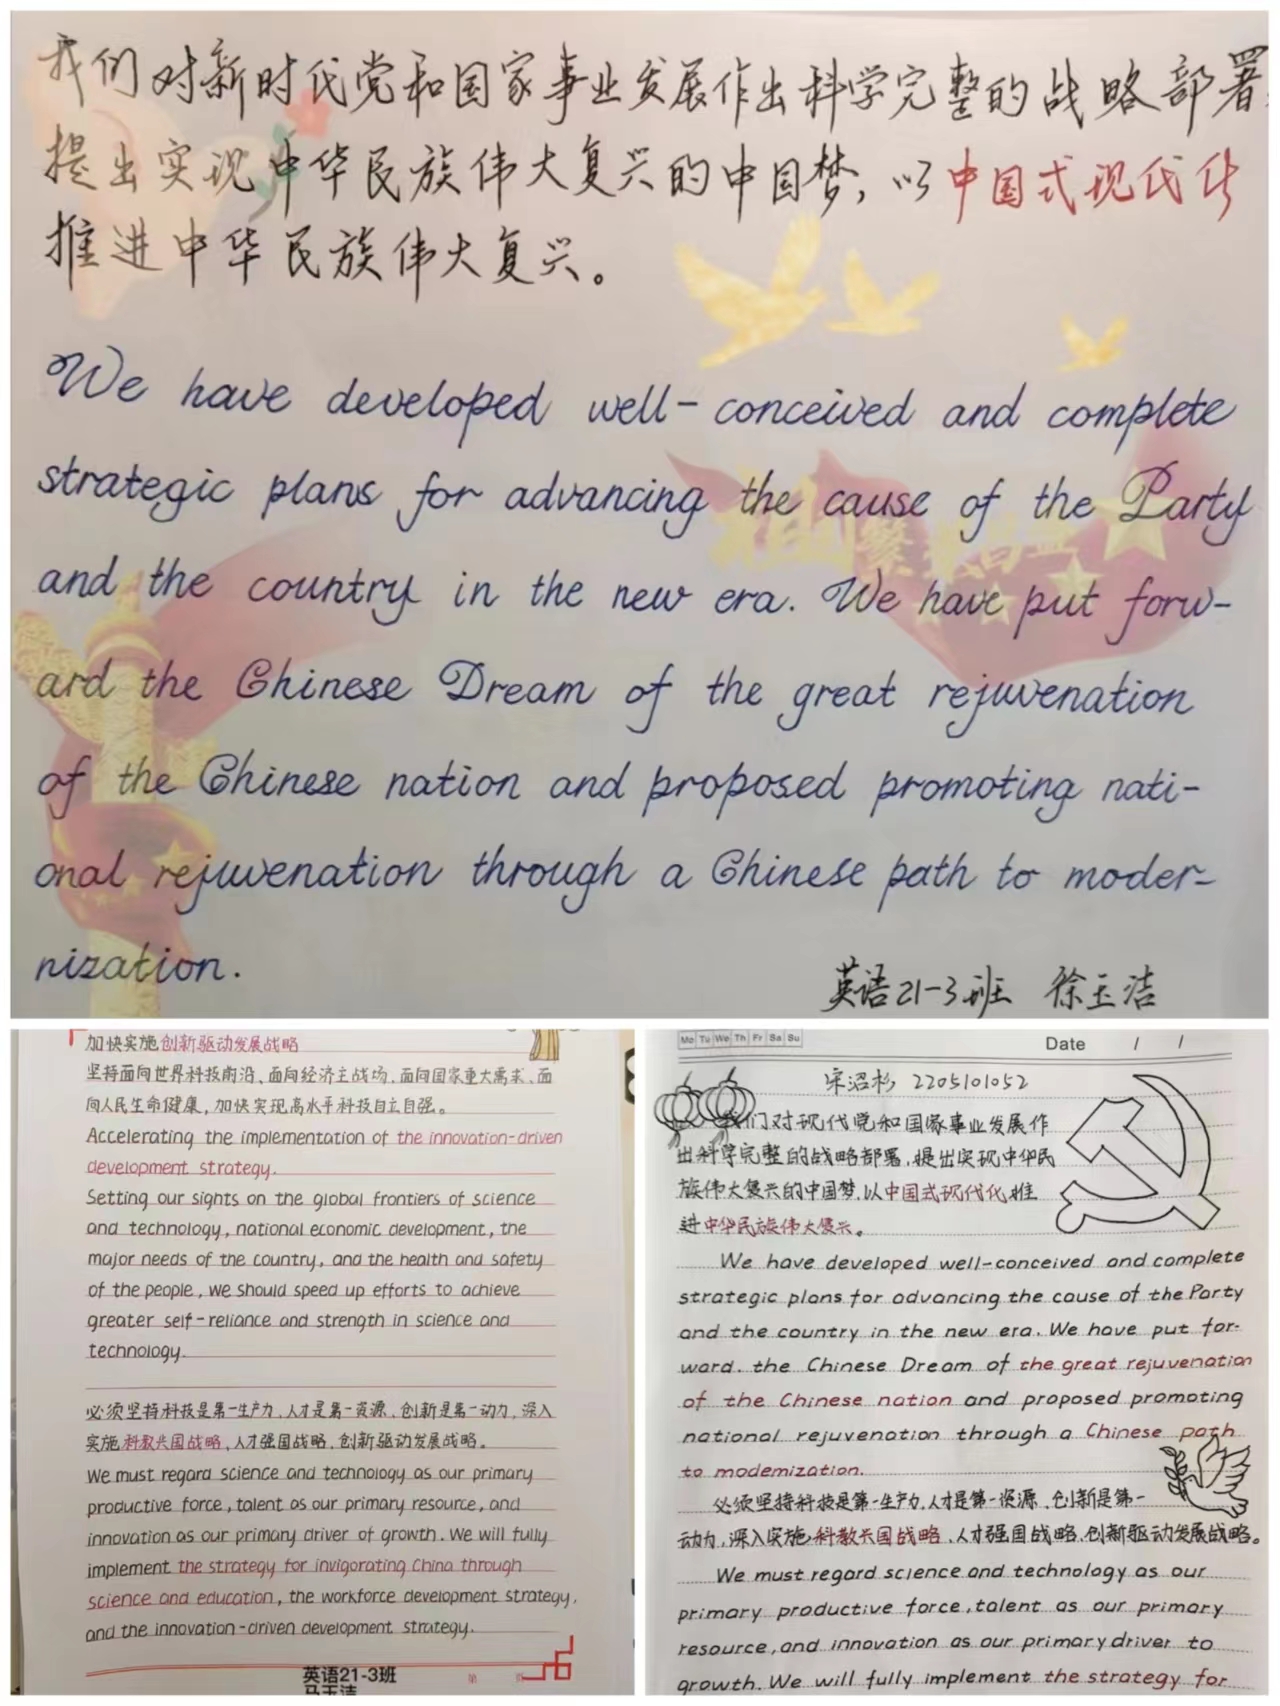 我们对新时代党和国家事业发展作出科学完整的战略部署,
提出实现中华民族伟大复兴的中国梦，以中国式现代化
推进中华民族伟大复兴。
We have developed well-conceived and complete
strategic plans for advancing the cause of the Party
and the country in the new era. We have put forw-
ard the Chinese Dream of the great rejuvenation
of the Chinese nation and proposed promoting nati-
onal rejuvenation through a Chinese path to moder-
nization.
英语21-3班 徐玉洁
加快实施创新驱动发展战略
坚持面向世界科技前沿、面向经济主战场、面向国家重大需求、面
向人民生命健康，加快实现高水平科技自立自强。
Accelerating the implementation of the innovation-driven
development strategy.
Setting our sights on the global frontiers of science
and technology, national economic development, the
major needs of the country, and the health and safety
of the people, we should speed up efforts to achieve
greater self-reliance and strength in science and
technology.
必须坚持科技是第一生产力、人才是第一资源、创新是第一动力，深入
实施科教兴国战略、人才强国战略、创新驱动发展战略。
We must regard science and technology as our primary
productive force, talent as our primary resource, and
innovation as our primary driver of growth. We will fully
implement the strategy for invigorating China through
science and education, the workforce development strategy,
and the innovation-driven development strategy.
英语21-3班
马玉洁
第 页
Mo Tu We Th Fr Sa Su
Date / /
宋沼杉 2205101052
我们对现代党和国家事业发展作
出科学完整的战略部署，提出实现中华民
族伟大复兴的中国梦，以中国式现代化推
进中华民族伟大复兴。
We have developed well-conceived and complete
strategic plans for advancing the cause of the Party
and the country in the new era. We have put for-
ward. the Chinese Dream of the great rejuvenation
of the Chinese nation and proposed promoting
national rejuvenation through a Chinese path
to modemization.
必须坚持科技是第一生产力、人才是第一资源、创新是第一
动力，深入实施科教兴国战略、人才强国战略、创新驱动发展战略。
We must regard science and technology as our
primary productive force, talent as our primary
resource, and innovation as our primary driver to
growth. We will fully implement the strategy for